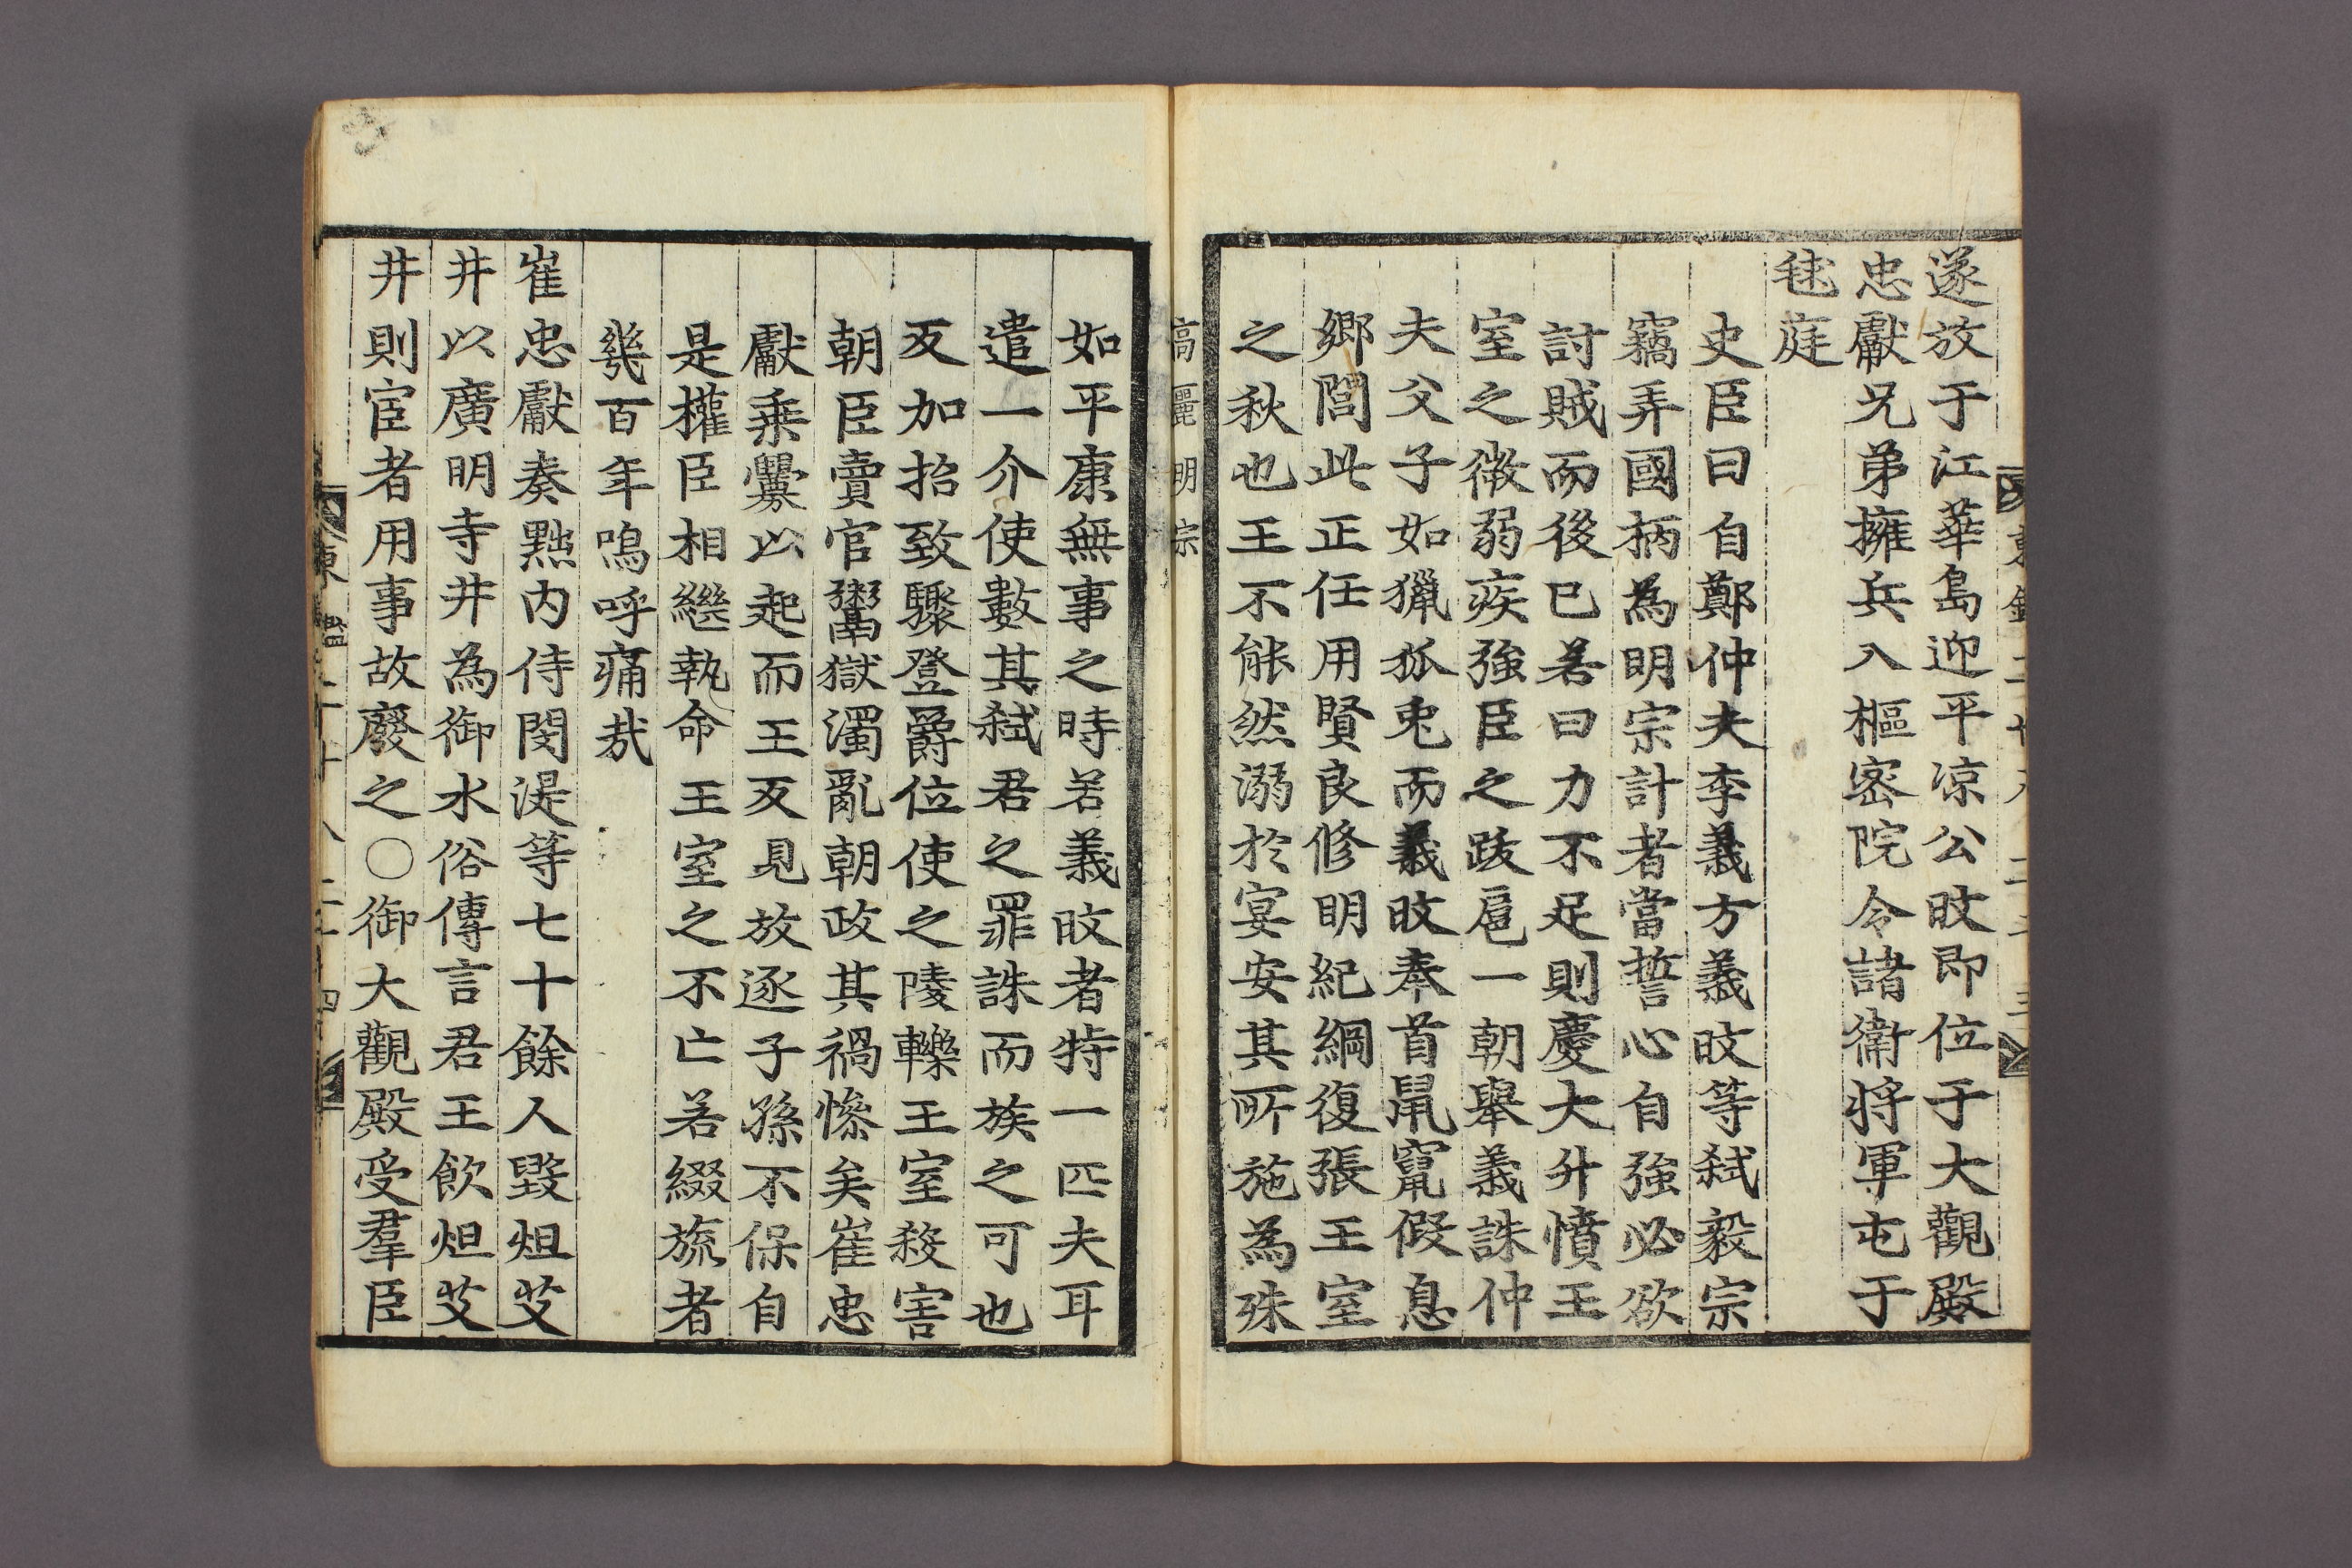 遂放于江華島迎平凉公旼即位于大觀殿
忠獻兄弟擁兵入樞密院令諸衛將軍屯于
毬庭
史臣曰自鄭仲夫李義方義旼等弑毅宗
竊弄國柄為明宗計者當誓心自強必欲
討賊而後已若曰力不足則慶大升憤王
室之微弱疾強臣之跋扈一朝舉義誅仲
夫父子如獵狐兎而義旼奉首鼠竄假息
鄉閭此正任用賢良修明紀綱復張王室
之秋也王不能然溺於宴安其所施為殊
高麗明宗
如平康無事之時若義旼者特一匹夫耳
遣一介使數其弑君之罪誅而族之可也
反加招致驟登爵位使之陵轢王室殺害
朝臣賣官鬻獄濁亂朝政其禍慘矣崔忠
獻乗釁以起而王反見放逐子孫不保自
是權臣相繼執命王室之不亡若綴旒者
幾百年嗚呼痛哉
崔忠獻奏黜内侍閔湜等七十餘人毀炟艾
井以廣明寺井為御水俗傳言君王飲炟艾
井則宦者用事故廢之○御大觀殿受羣臣